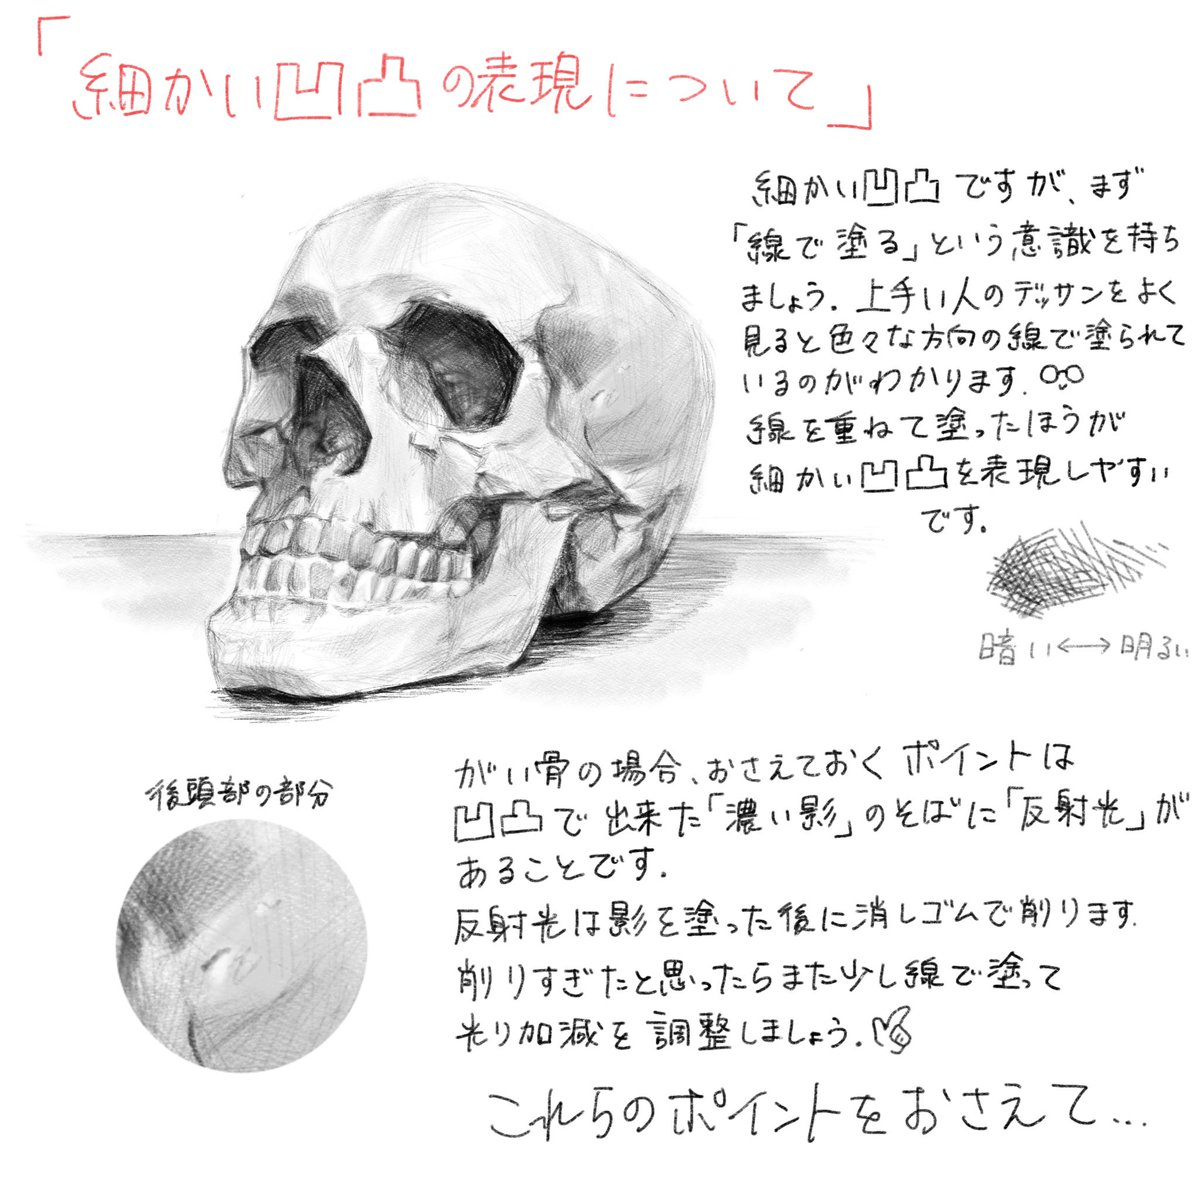 「細かい凹凸の表現について」
細かい凹凸ですが、まず
「線で塗る」という意識を持ち
ましょう. 上手い人のデッサンをよく
見ると色々な方向の線で塗られて
いるのがわかります.
線を重ねて塗ったほうが
細かい凹凸を表現しやすい
です.
暗い↔明るい
後頭部の部分
がい骨の場合、おさえておくポイントは
凹凸で出来た「濃い影」のそばに「反射光」が
あることです.
反射光は影を塗った後に消しゴムで削ります.
削りすぎたと思ったらまた少し線で塗って
光り加減を調整しましょう.
これらのポイントをおさえて...